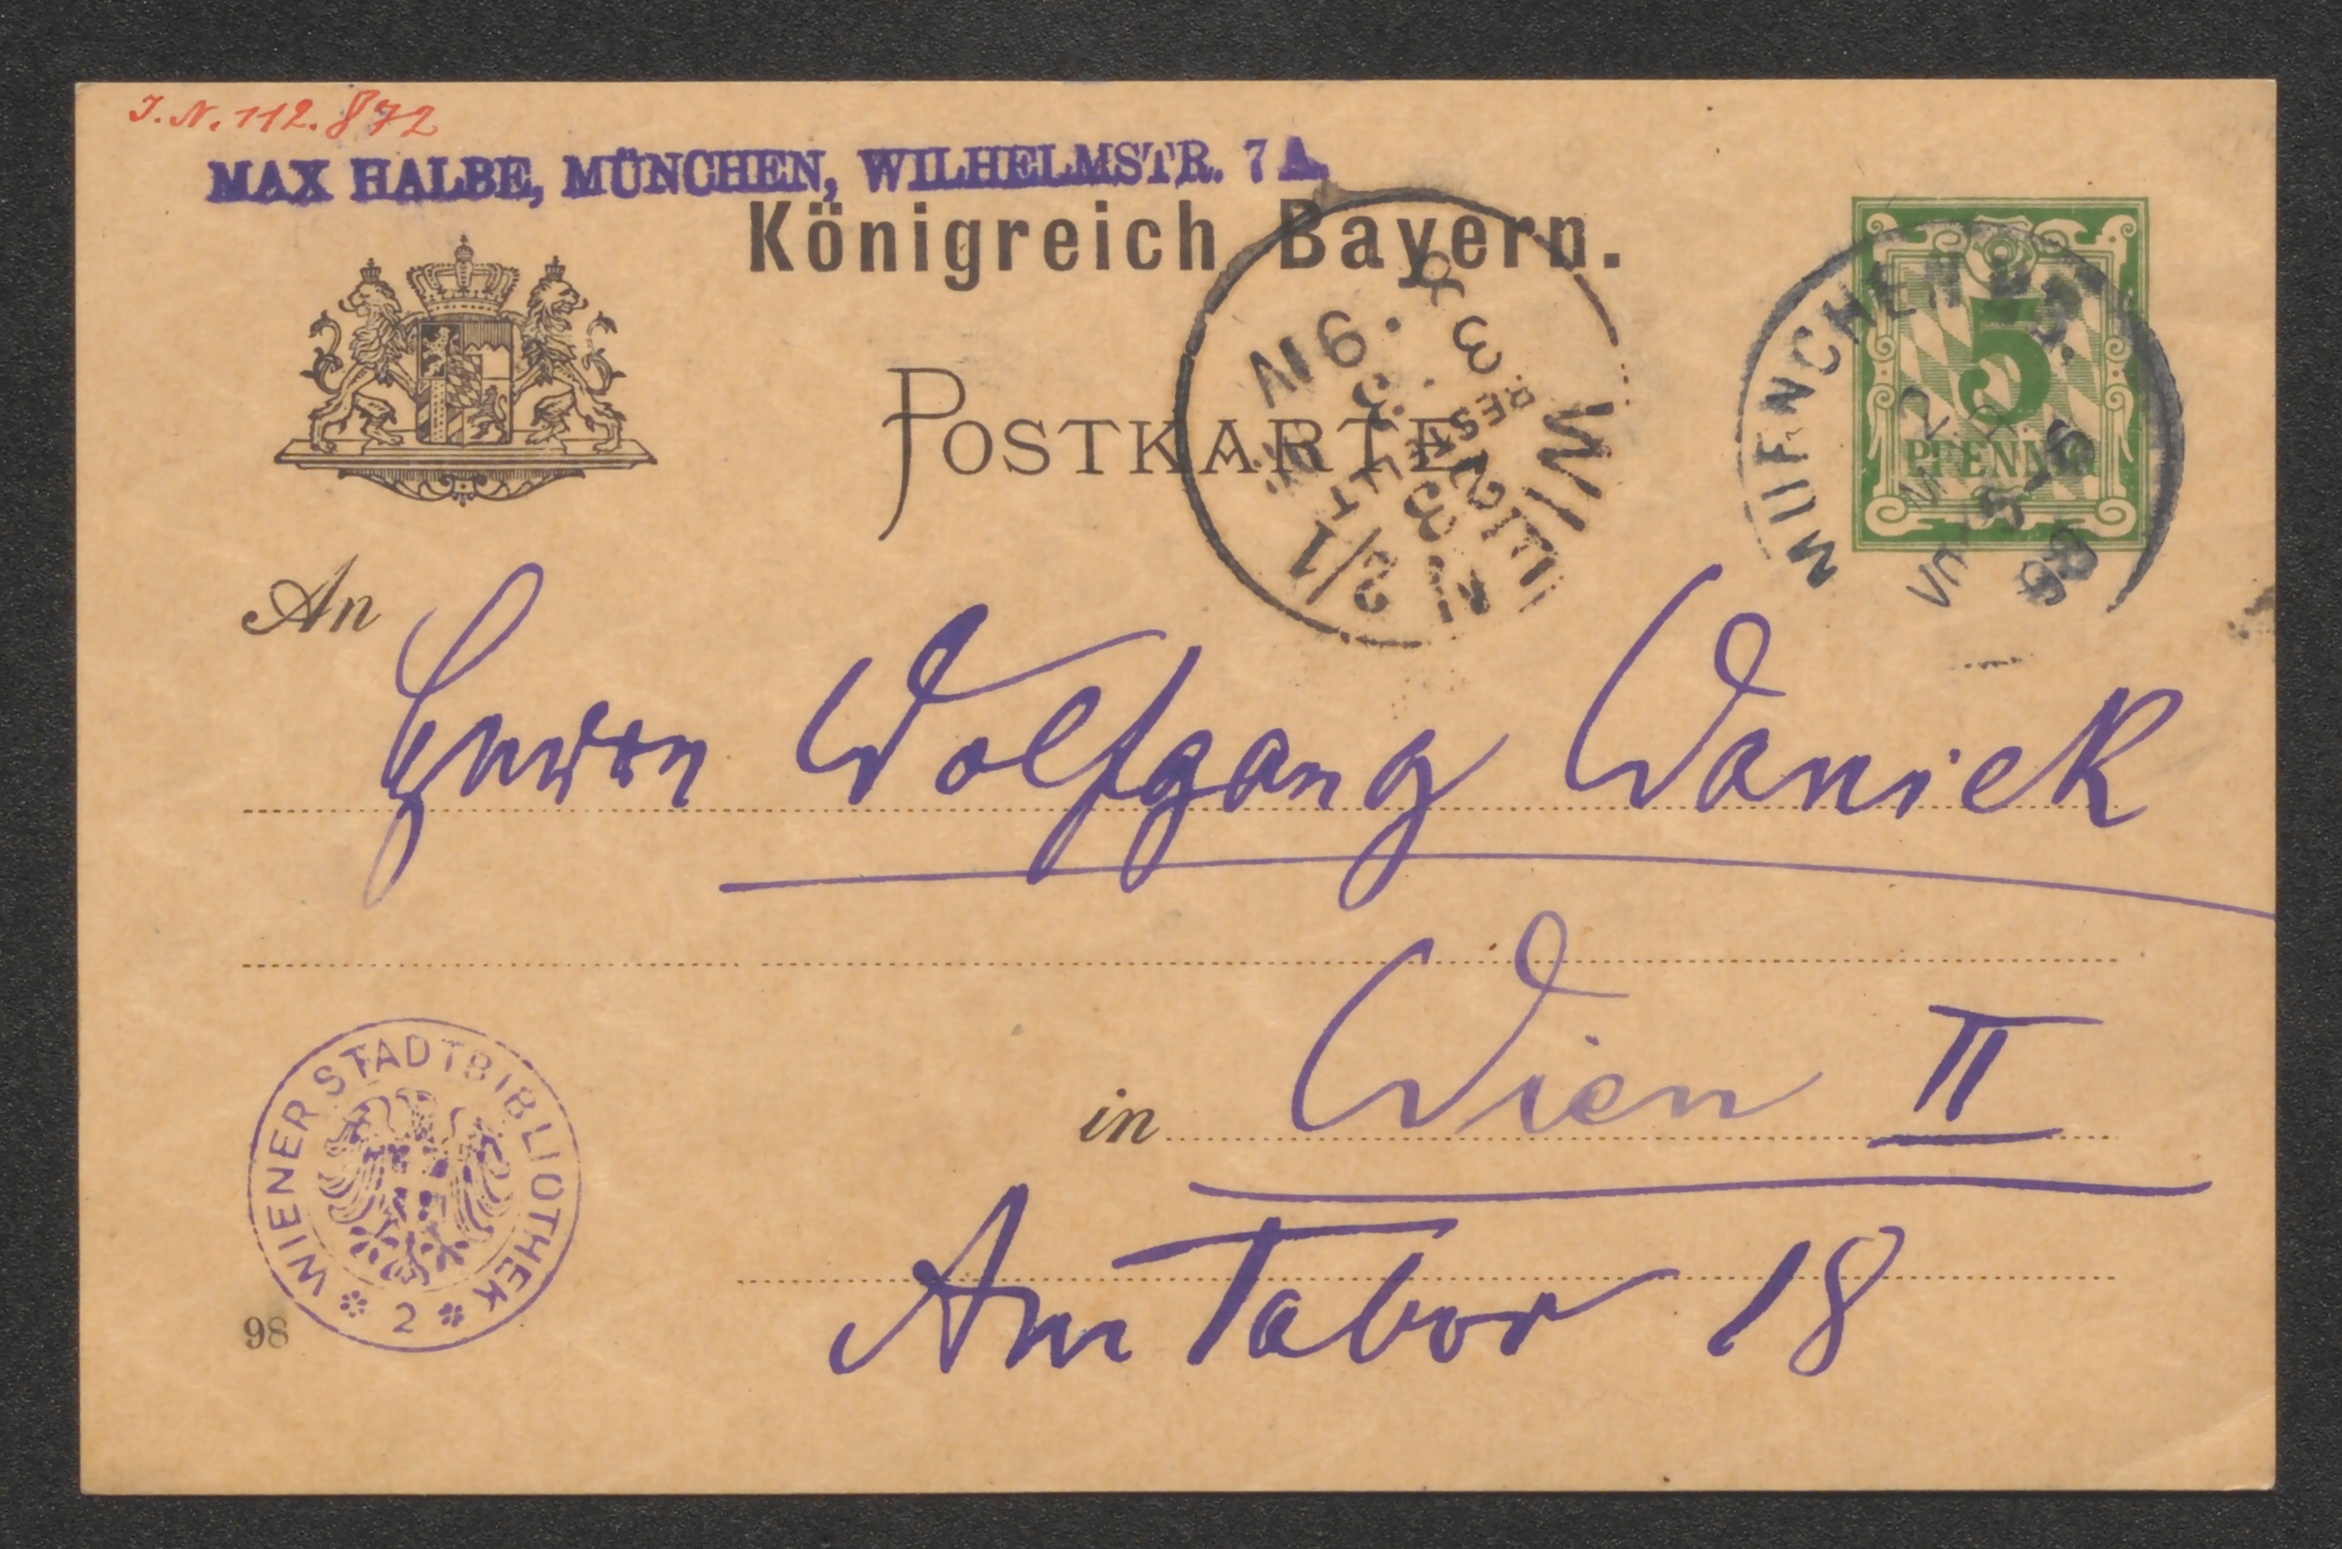 J.N. 112.872
MAX HALBE, MÜNCHEN, WILHELMSTR. 7 A.
Königreich Bayern.
POSTKARTE
MUENCHEN
98
WIEN 2/1
BESTELLT
5
PFENNIG
An
Herrn Wolfgang Waniek
in Wien II
Am Tabor 18
WIENER STADTBIBLIOTHEK
2
98